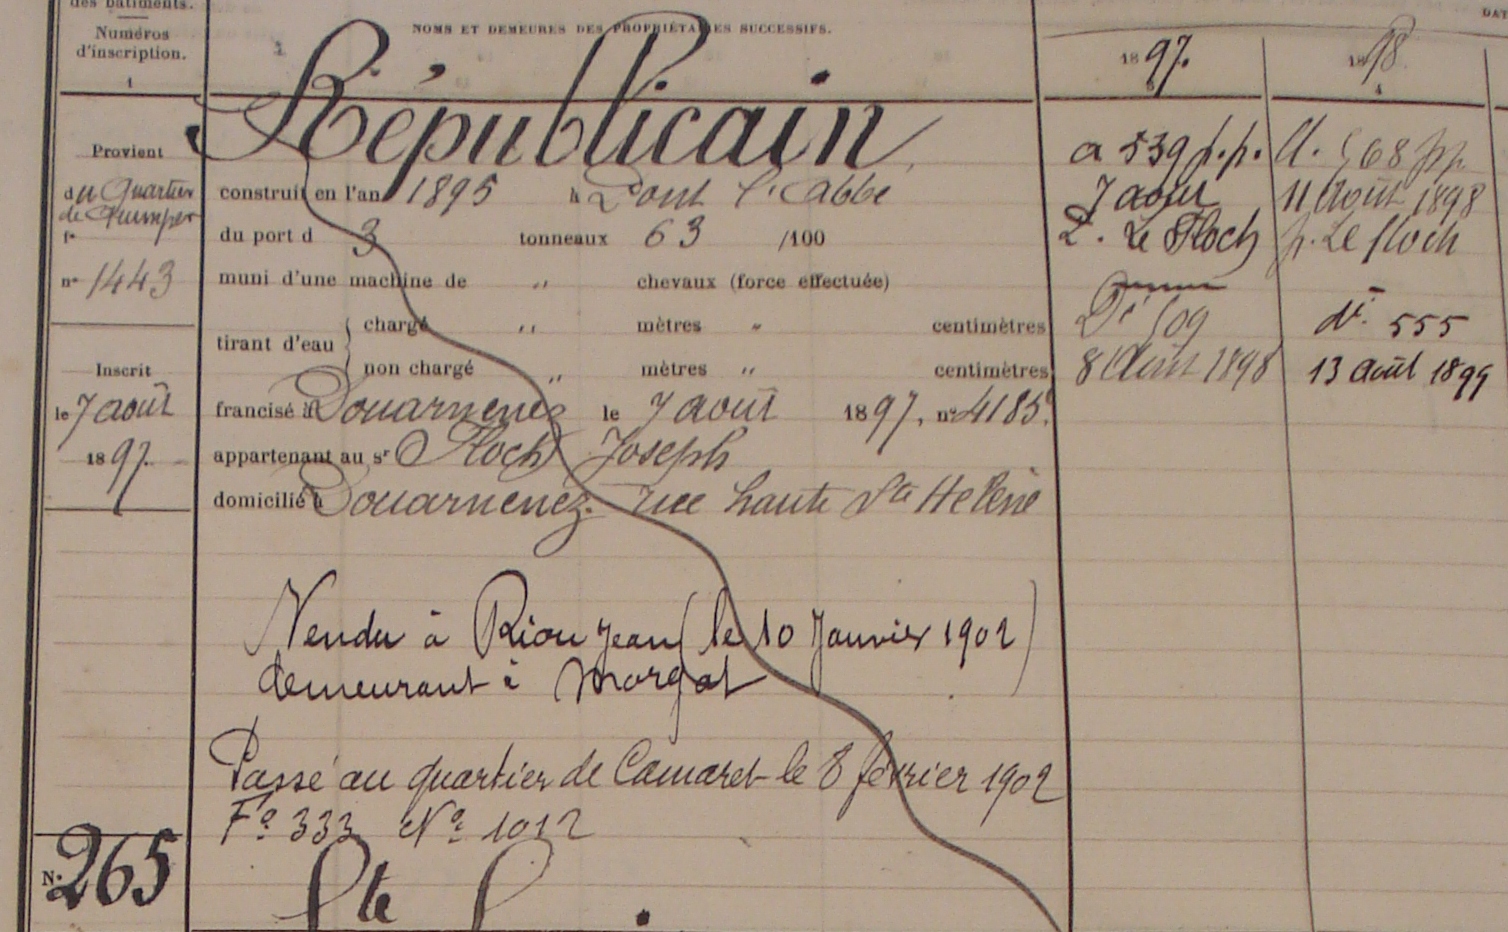 des bâtiments.
Numéros
d'inscription.
1
Provient
du Quartier
de Quimper
f°
n° 1443
Inscrit
le 7 août
1897.
N° 265
NOMS ET DEMEURES DES PROPRIÉTAIRES SUCCESSIFS.
Républicain
construit en l'an 1895 à Pont l'Abbé
du port d 3 tonneaux 63 /100
muni d'une machine de " chevaux (force effectuée)
tirant d'eau
chargé " mètres " centimètres
non chargé " mètres " centimètres
francisé à Douarnenez le 7 août 1897. n° 4185.
appartenant au sr Floch Joseph
domicilié à Douarnenez. rue haute Ste Hélène
Vendu à Riou Jean (le 10 Janvier 1902)
demeurant à Morgat
Passé au quartier de Camaret le 8 février 1902
F° 333 N° 1012
Ste
DAT
1897.
a 539 p.p.
7 août
Le Floch
Dt 509
8 Août 1898
1898
4
A. 568 pp
11 Août 1898
p. Le floch
dt. 555
13 août 1899